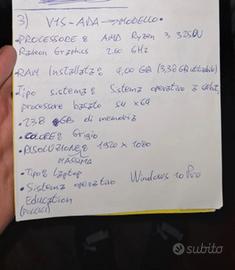 3) V15-ADA → MODELLO •
• PROCESSORE: AMD Ryzen 3 3250U
Radeon Graphics 2.60 GHz
• RAM Installata: 4,00 GB (3,38 GB utilizzabili)
Tipo sistema: Sistema operativo a 64 bit,
processore basato su x64
• 238 GB di memoria
• COLORE: Grigio
• RISOLUZIONE: 1920 x 1080
MASSIMA
• Tipo: Laptop
• Sistema operativo Windows 10 Pro
Education
subito